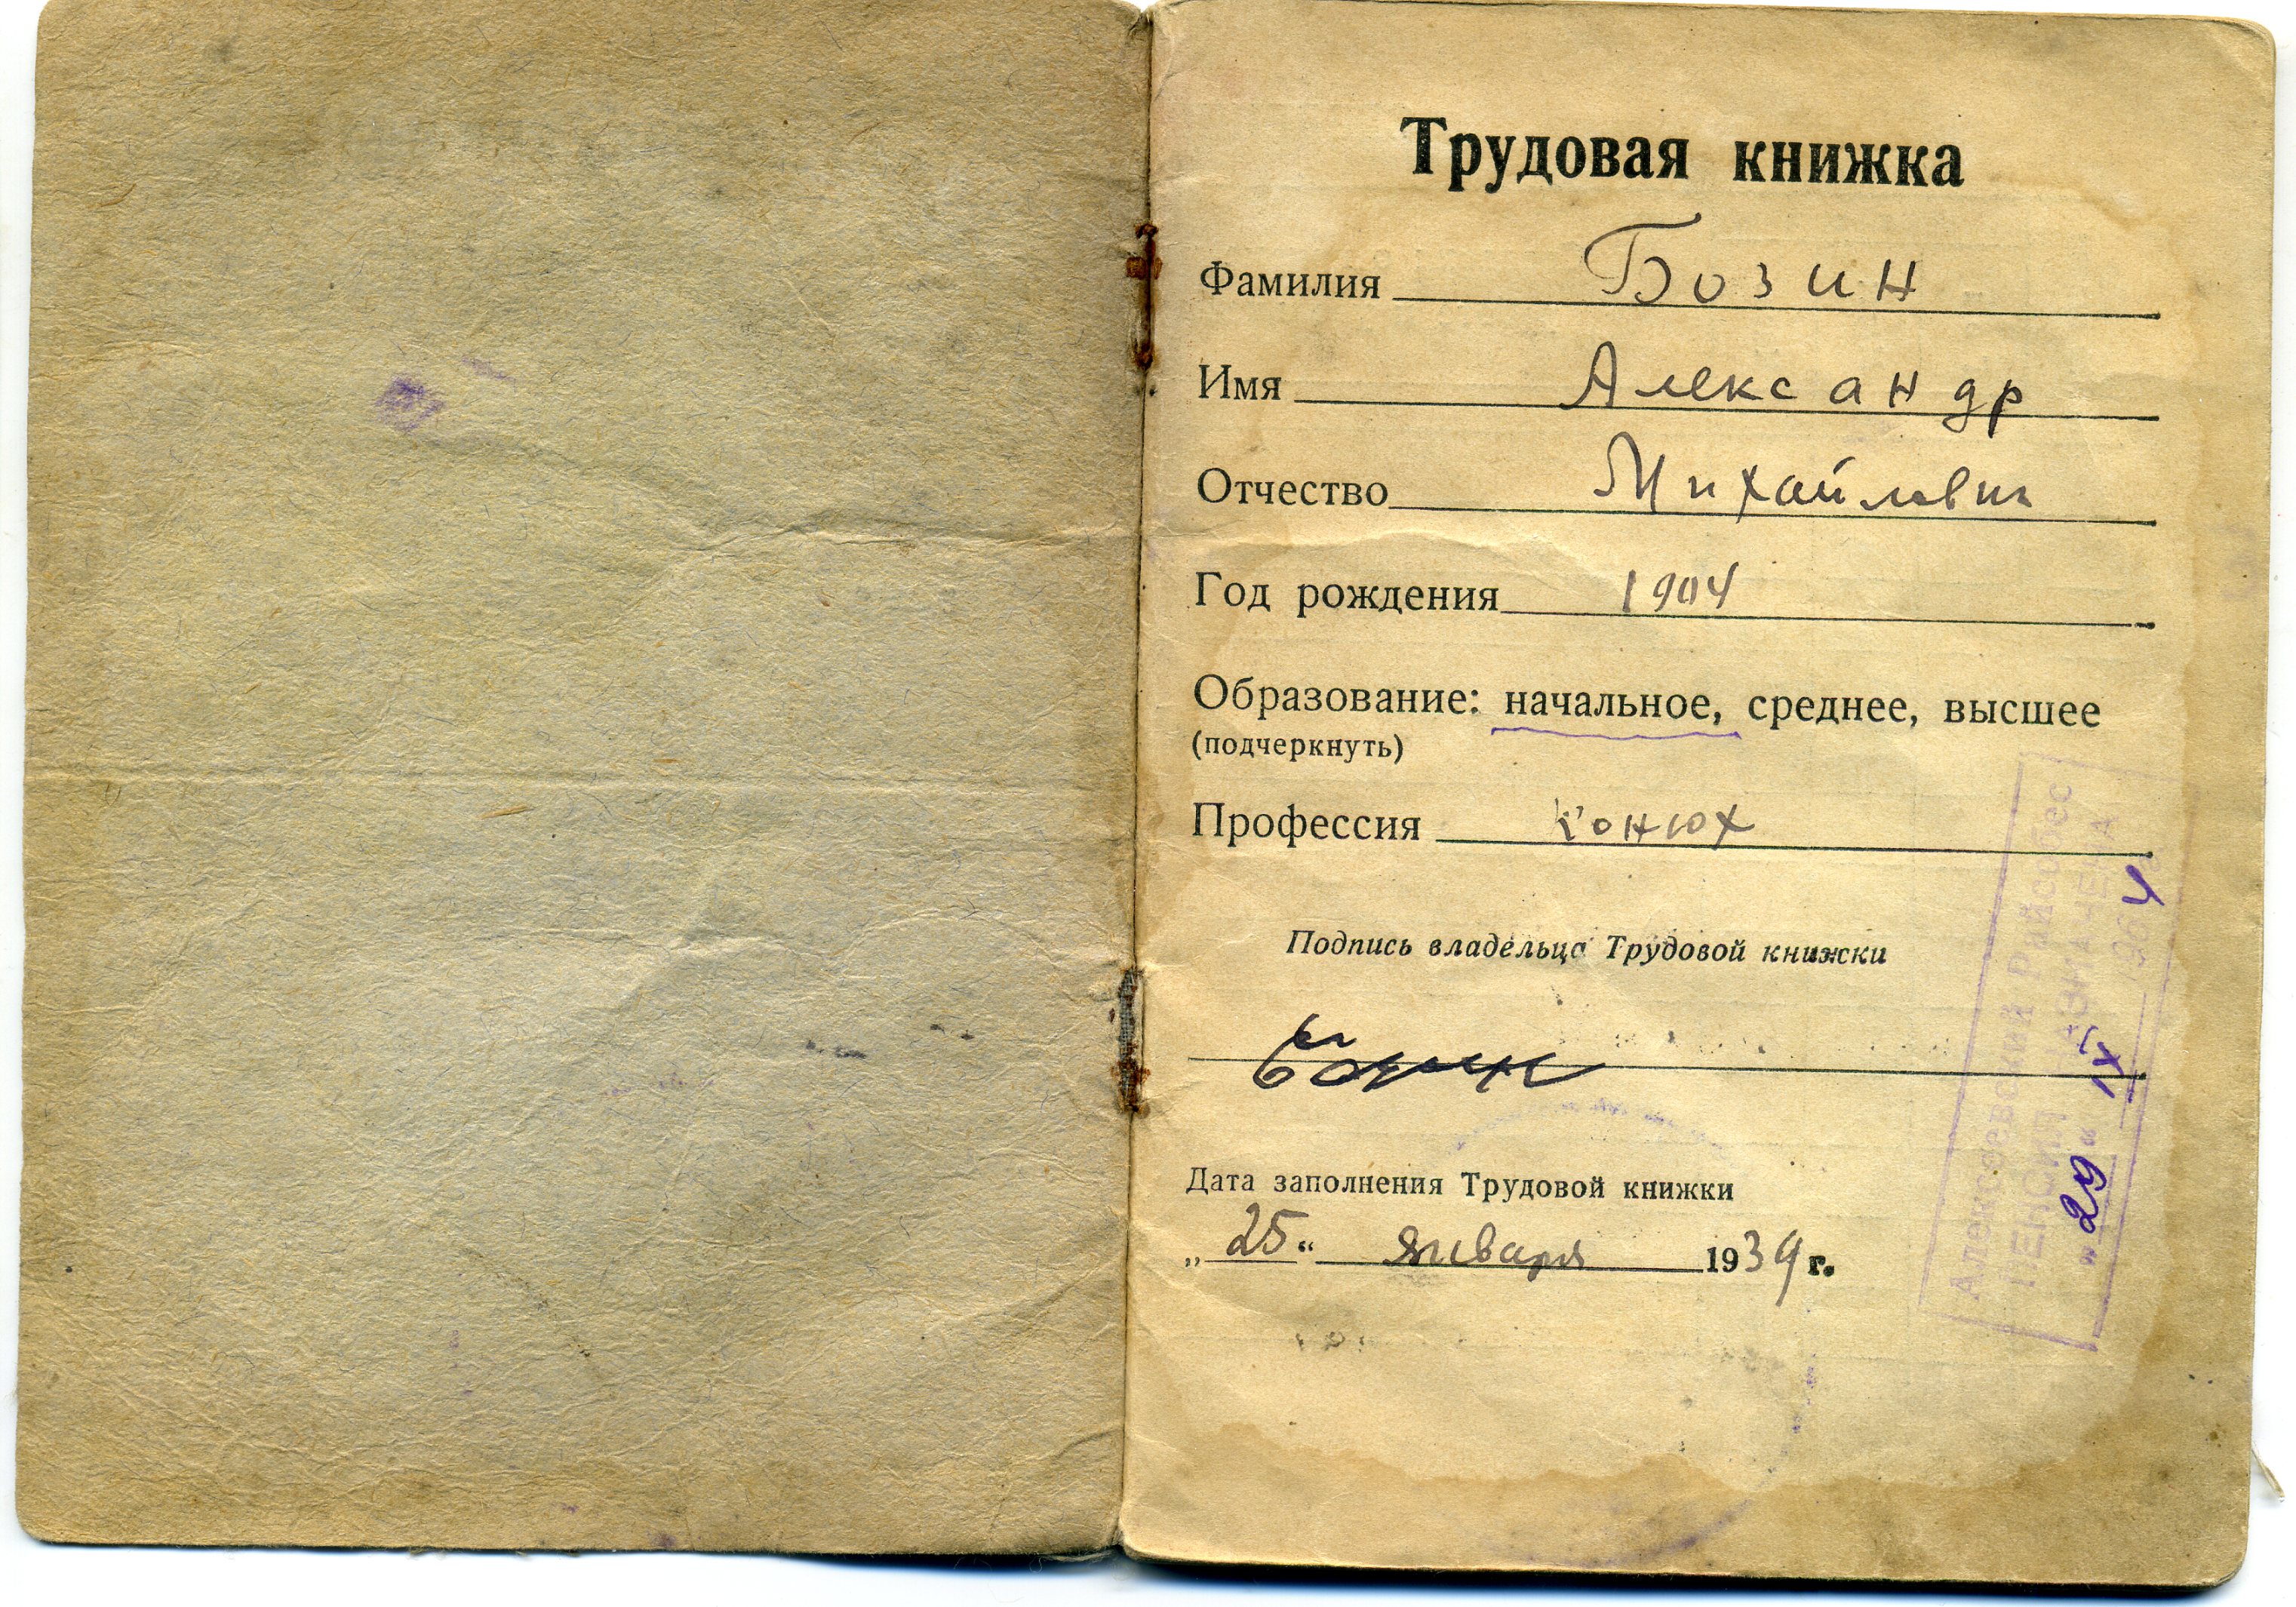 Трудовая книжка
Фамилия Бозин
Имя Александр
Отчество Михайлович
Год рождения 1904
Образование: начальное, среднее, высшее
(подчеркнуть)
Профессия Конюх
Подпись владельца Трудовой книжки
Бозин
Дата заполнения Трудовой книжки
„25“ января 1939 г.
Алексеевский Райсобес
ПЕНСИЯ НАЗНАЧЕНА
„29“ IX